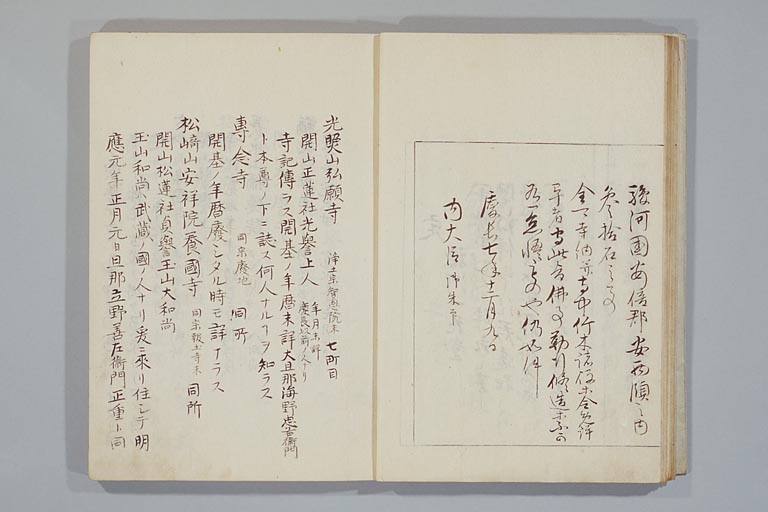 駿河國安倍郡安西順之内
参拾石之事
全可寺納并寺中竹木諸役等令免許
畢者守此旨佛事勤行修造等不可
有懈怠之也仍如件
慶長七年十二月九日
内大臣御朱印
光照山弘願寺 浄土宗智恩院末 七町目
開山正蓮社光譽上人 年月未詳慶長以前ノ人ナリ
寺記傳ラス開基ノ年暦未詳大旦那海野忠右衛門
ト本尊ノ下ニ誌ス何人ナルヿヲ知ラス
專念寺 同宗廢地 同所
開基ノ年暦廢シタル時モ詳ナラス
松﨑山安祥院養國寺 同宗報土寺末 同所
開山松蓮社貞譽玉山大和尚
玉山和尚ハ武藏ノ國ノ人ナリ爰ニ來リ住シテ明
應元年正月元日旦那立野善左衛門正重ト同